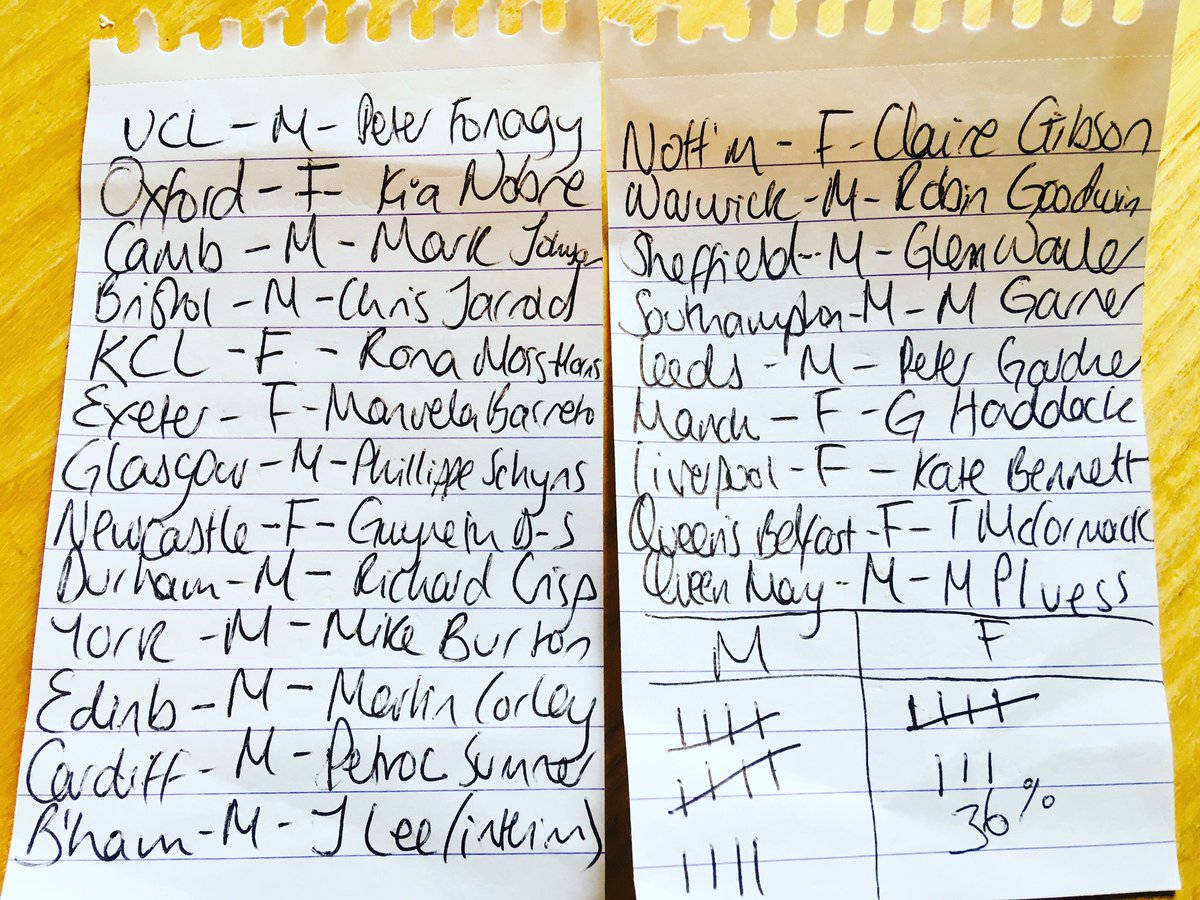 UCL - M - Peter Fonagy
Oxford - F - Kia Nobre
Camb - M - Mark Johnson
Bristol - M - Chris Jarrold
KCL - F - Rona Moss-Morris
Exeter - F - Manuela Barreto
Glasgow - M - Phillippe Schyns
Newcastle - F - Guyneth D-S
Durham - M - Richard Crisp
York - M - Mike Burton
Edinb - M - Martin Corley
Cardiff - M - Petroc Sumner
B'ham - M - J Lee (interim)
Nott'm - F - Claire Gibson
Warwick - M - Robin Goodwin
Sheffield - M - Glenn Waller
Southampton - M - M Garner
Leeds - M - Peter Gardner
Manch - F - G Haddock
Liverpool - F - Kate Bennett
Queen's Belfast - F - T McCormack
Queen May - M - M Pluess
M F
36%